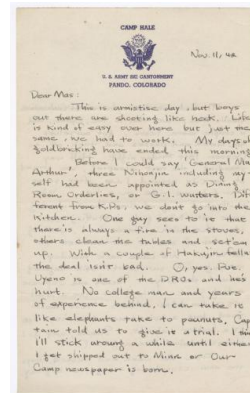 CAMP HALE
U. S. ARMY SKI CANTONMENT
PANDO, COLORADO
Nov. 11, 42
Dear Mas:
This is armistise day, but boys
out there are shooting like heck. Life
is kind of easy over here but just the
same, we had to work. My days of
goldbricking have ended this morning.
Before I could say "General Mac
Arthur", three Nihonjin including my-
self had been appointed as Dining
Room Orderlies, or G.I. waiters. Dif
ferent from K.P.s. we don't go into the
kitchen. One guy sees to it that
there's always a fire in the stoves,
others clean the tables and set'em
up. With a couple of Hakujin fella
the deal isn't bad. O, yes, Pvt.
is one of the DROs and he's
hurt. No college man and years
of experience behind. I can take it
like elephants take to peanuts. Cap
tain told us to give it a trial. I
I'll stick around a while until either
I get shipped out to Minn or Our
Camp newspaper is born.